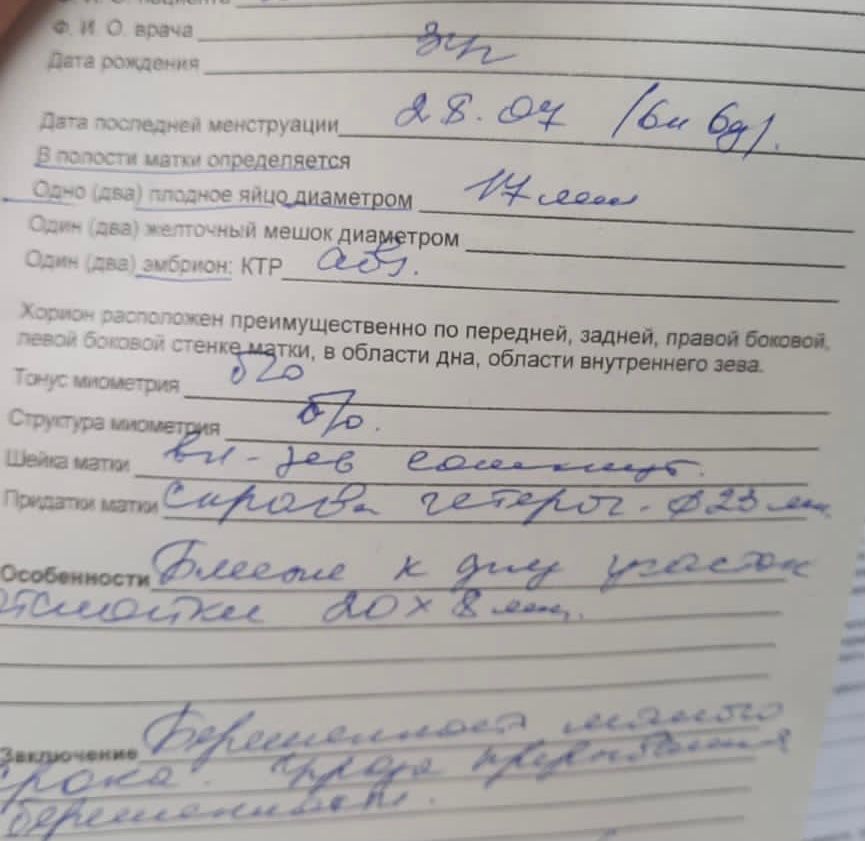 Ф. И. О. врача
Дата рождения
Дата последней менструации 28.07 (6н 6д).
В полости матки определяется
Одно (два) плодное яйцо диаметром 17 мм
Один (два) желточный мешок диаметром
Один (два) эмбрион: КТР abs.
Хорион расположен преимущественно по передней, задней, правой боковой,
левой боковой стенке матки, в области дна, области внутреннего зева.
Тонус миометрия б/о
Структура миометрия б/о.
Шейка матки вн-зев сомкнут.
Придатки матки Справа гетерог. ø23 мм.
Особенности Ближе к дну участок
отслойки 20 х 8 мм.
Заключение Беременность малого
срока. Угроза прерывания
беременности.